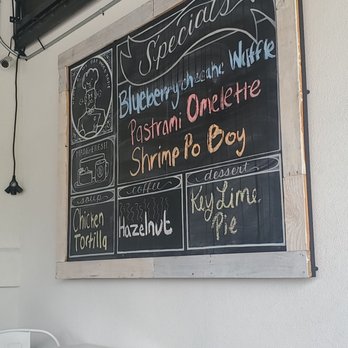 Specials
Blueberry cheesecake Waffle
Pastrami Omelette
Shrimp Po Boy
soup
Chicken
Tortilla
coffee
Hazelnut
dessert
Key Lime
Pie